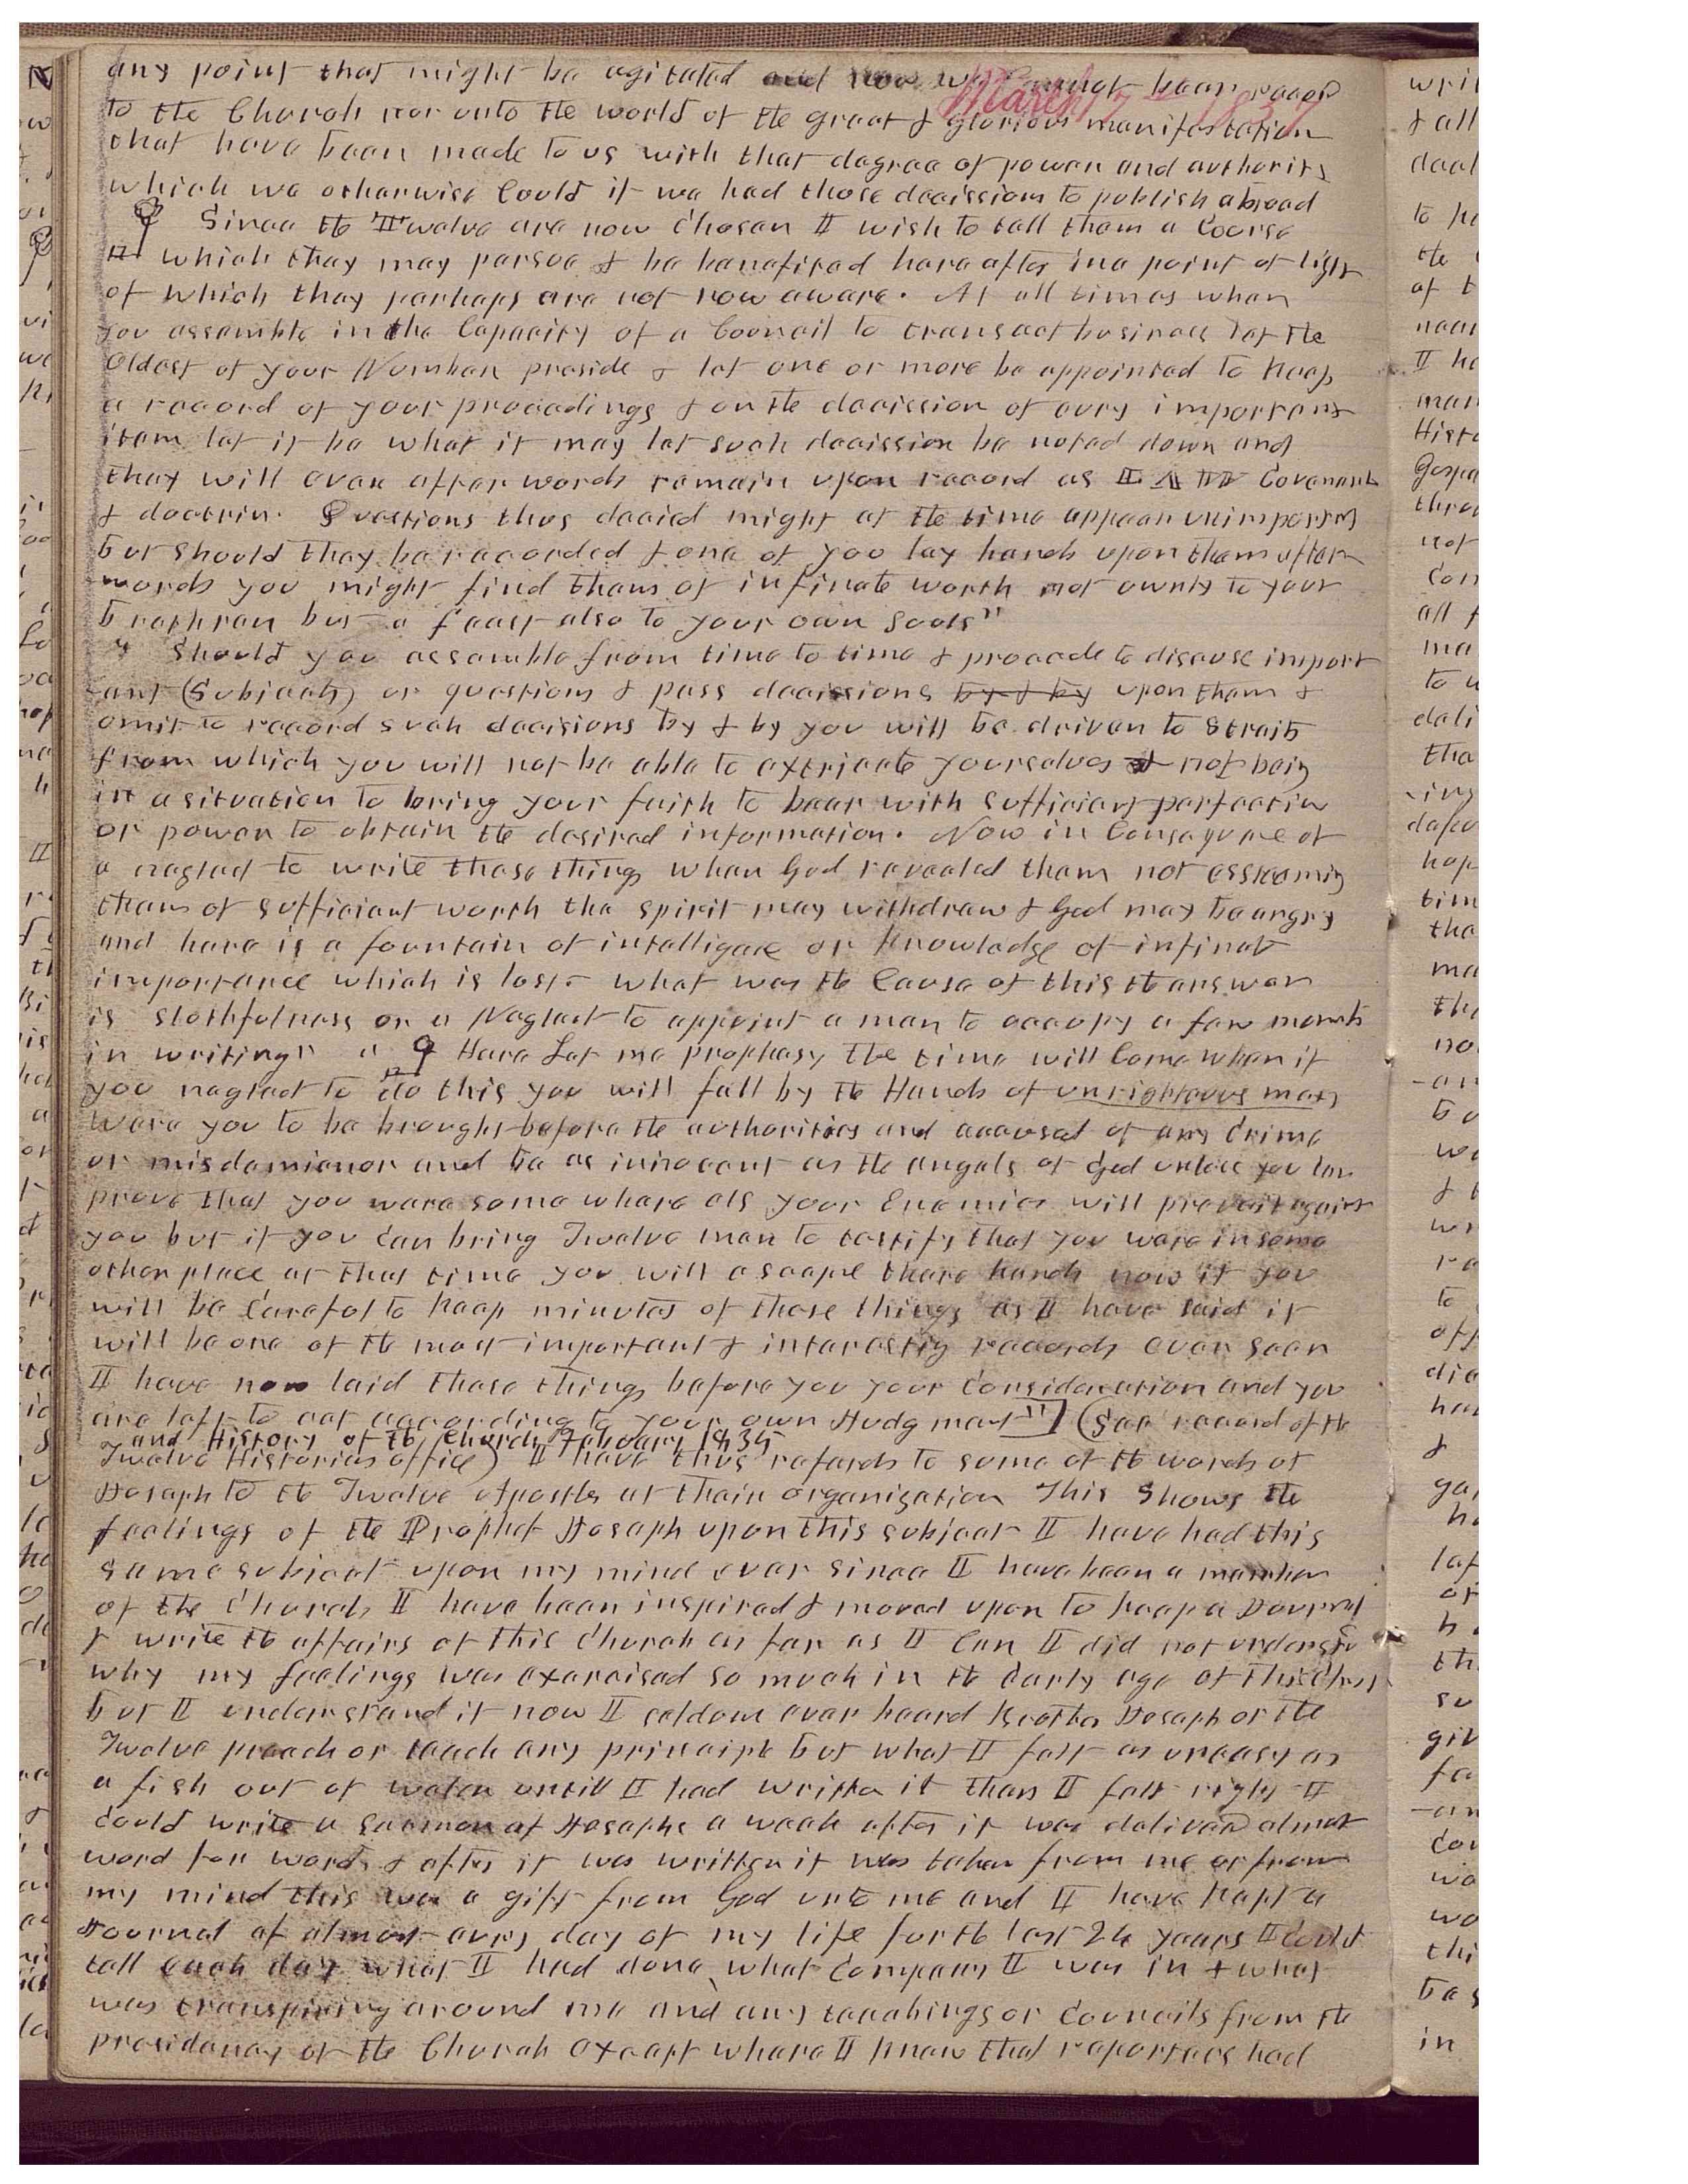 any point that might be agitated and now we cannot bear record
March 17th 1857
to the Church nor unto the world of the great & glorious manifestation
that have been made to us with that degree of power and authority
which we otherwise Could if we had those decissions to publish abroad
Since the Twelve are now chosen I wish to tell them a Course
which they may persue & be benefited hereafter in a point of light
of which they perhaps are not now aware. At all times when
you assemble in the Capacity of a Council to transact business let the
Oldest of your Number preside & let one or more be appointed to keep
a record of your proceedings & on the decission of evry important
item let it be what it may let such decission be noted down and
they will ever after words remain upon record as Covenants
& doctrin. Questions thus decied might at the time appear unimportant
but should they be recorded & one of you lay hands upon them after
words you might find them of infinate worth not ownly to your
brethren but a feast also to your own Souls"
" Should you assemble from time to time & proceede to discuse import
ant (Subjects) or questions & pass decissions by & by upon them &
omit to record such decisions by & by you will be driven to Straits
from which you will not be able to extricate yourselves not being
in a situation to bring your faith to bear with sufficiant perfection
or power to obtain the desired information. Now in Consequence of
a neglect to write these things when God revealed them not esteeming
them of sufficiant worth the spirit may withdraw & God may be angry
and here is a fountain of intelligance or knowledge of infinat
importance which is lost. what was the Cause of this the answer
is slothfulness or a Neglect to appoint a man to occupy a few moments
in writing" " Here Let me prophesy the time will Come when if
you neglect to do this you will fall by the Hands of unrighteous men
were you to be brought before the authorities and accused of any crime
or misdemienor and be as innocent as the angels of God unless you Can
prove that you were some where els your Enemies will prevail against
you but if you can bring Twelve men to testify that you were in some
other place at that time you will escape there hands now if you
will be careful to keep minutes of these things as I have said it
will be one of the most important & interesting records ever seen
I have now laid these things before you your consideration and you
are left to act according to your own Judgment"] (See record of the
and History of the Church February 1835
Twelve Historias office) I have thus refered to some of the words of
Joseph to the Twelve Apostles at their organization This Shows the
feelings of the Prophet Joseph upon this subject I have had this
same subject upon my mind ever since I have been a member
of the church I have been inspired & moved upon to keep a Journal
& write the affairs of this church as far as I Can I did not understand
why my feelings was exercised so much in the early age of this church
but I understand it now I seldom ever heard Brother Joseph or the
Twelve preach or teach any principle but what I felt as uneasy as
a fish out of water untill I had written it then I felt right I
could write a sermon of Josephs a week after it was delivered almost
word for word & after it was written it was taken from me or from
my mind this was a gift from God unto me and I have kept a
Journal of almost evry day of my life for the last 24 years I could
tell each day what I had done, what company I was in & what
was transpiring around me and any teachings or councils from the
presidency of the Church except where I knew that reporters had